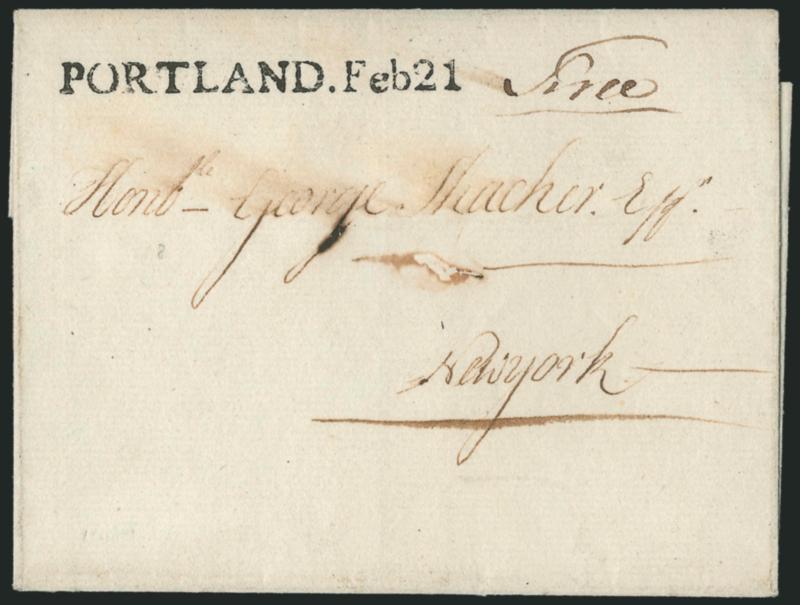 PORTLAND.Feb21 Free
Honble George Thacher. Esqr.
Newyork